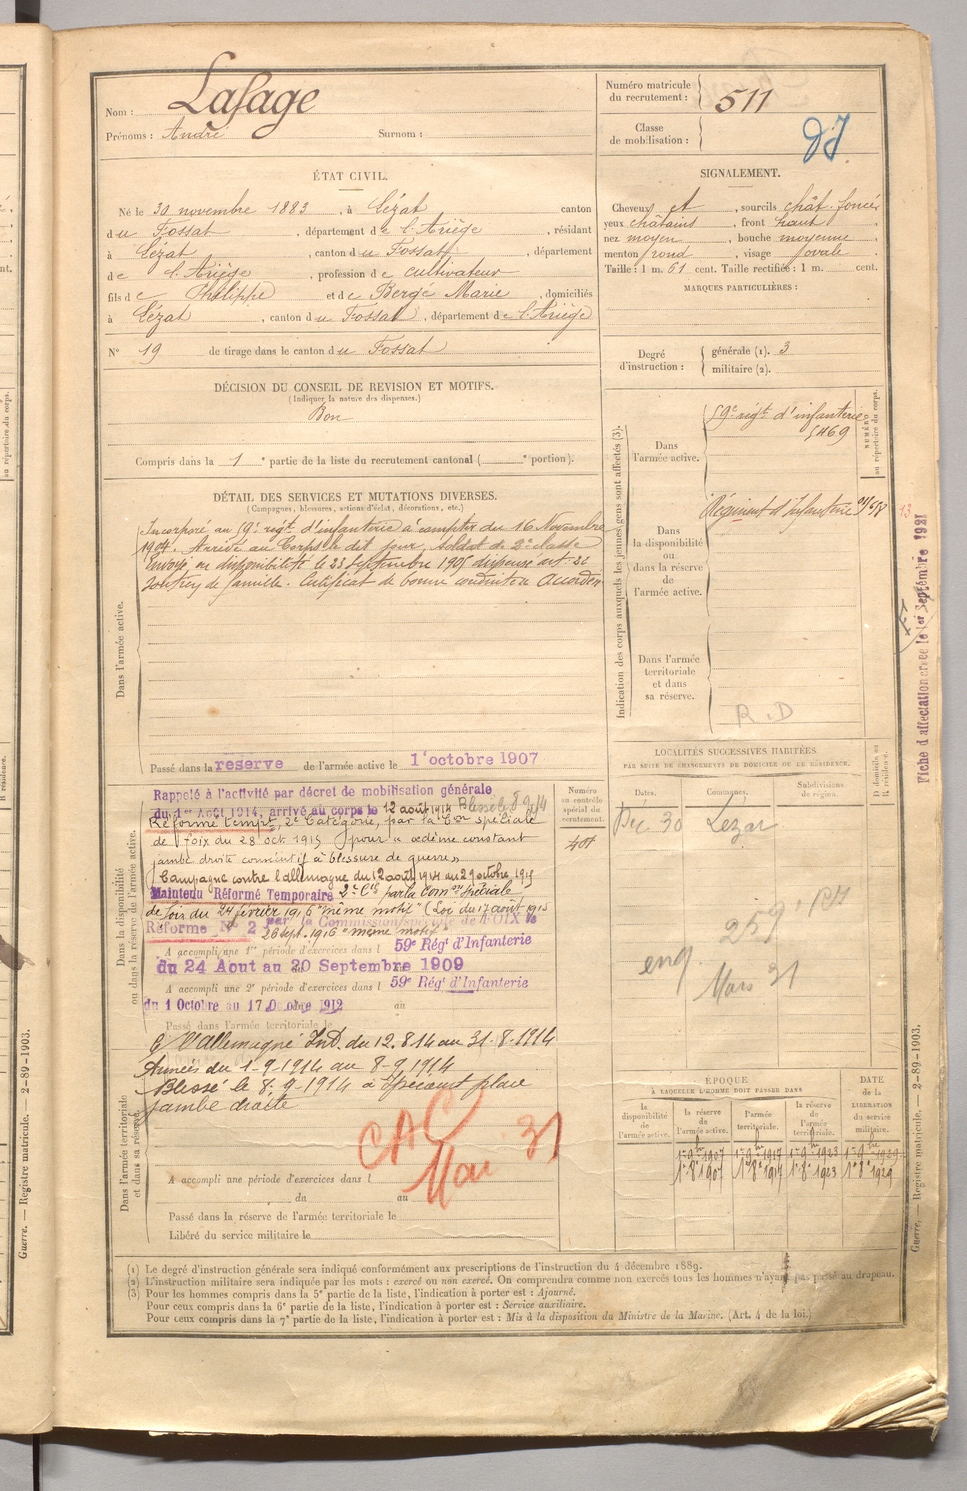 Nom : Lafage
Prénoms : André Surnom :
Numéro matricule
du recrutement : 511
Classe
de mobilisation :
ÉTAT CIVIL.
Né le 30 novembre 1883, à Lézat canton
du Fossat, département de l'Ariège, résidant
à Lézat, canton du Fossat, département
de l'Ariège, profession de cultivateur
fils de Philippe et de Bergé Marie, domiciliés
à Lézat, canton du Fossat, département de l'Ariège
N° 19 de tirage dans le canton du Fossat
SIGNALEMENT.
Cheveux et, sourcils chât. foncé,
yeux châtains, front haut,
nez moyen, bouche moyenne,
menton rond, visage ovale.
Taille : 1 m. 61 cent. Taille rectifiée : 1 m. cent.
MARQUES PARTICULIÈRES :
Degré
d'instruction :
générale (1). 3
militaire (2).
DÉCISION DU CONSEIL DE REVISION ET MOTIFS.
(Indiquer la nature des dispenses.)
Bon
Compris dans la 1e partie de la liste du recrutement cantonal ( e portion).
DÉTAIL DES SERVICES ET MUTATIONS DIVERSES.
(Campagnes, blessures, actions d'éclat, décorations, etc.)
Dans l'armée active.
Incorporé au 59e régt d'infanterie à compter du 16 Novembre
1904. Arrivé au Corps le dit jour, soldat de 2e classe
Envoyé en disponibilité le 23 Septembre 1905 dispensé art.
soutien de famille. Certificat de bonne conduite accordé.
Passé dans la réserve de l'armée active le 1 octobre 1907
Dans la disponibilité
ou dans la réserve de l'armée active.
Rappelé à l'activité par décret de mobilisation générale
du 1er Août 1914, arrivé au corps le 12 août 1914 Blessé le 8 9 14
Réformé tempre, 2e Catégorie, par la Con spéciale
de Foix du 28 oct. 1915 pour "œdème constant
jambe droite consécutif à blessure de guerre"
Campagne contre l'allemagne du 12 août 1914 au 29 octobre 1915
Maintenu Réformé Temporaire 2e Cie par la Comon spéciale
de Foix du 24 février 1916 "même motif" (Loi du 17 août 1915
Réformé N° 2 par la Commission spéciale de FOIX le
26 sept. 1916 "même motif"
A accompli une 1e période d'exercices dans l 59e Régt d'Infanterie
du 24 Aout au 20 Septembre 1909
A accompli une 2e période d'exercices dans l 59e Régt d'Infanterie
du 1 Octobre au 17 Octobre 1912
Passé dans l'armée territoriale le
C l'allemagne Int. du 12.8.14 au 31.8.1914
Armées du 1-9-1914 au 8-9-1914
Blessé le 8-9-1914 à plaie
jambe droite
CAC
Mai 31
Dans l'armée territoriale
et dans sa réserve.
A accompli une période d'exercices dans l
du au
Passé dans la réserve de l'armée territoriale le
Libéré du service militaire le
Numéro
au contrôle
spécial du
recrutement.
Indication des corps auxquels les jeunes gens sont affectés (3).
Dans
l'armée active.
59e régt d'infanterie
5469
NUMÉRO
au répertoire du corps.
Dans
la disponibilité
ou
dans la réserve
de
l'armée active.
Régiment d'Infanterie
Dans l'armée
territoriale
et dans
sa réserve.
R.D
Fiche d'affectation créée le 1er Septembre 1921
LOCALITÉS SUCCESSIVES HABITÉES
PAR SUITE DE CHANGEMENTS DE DOMICILE OU DE RÉSIDENCE.
Dates. Communes. Subdivisions
de région.
D domicile ou
R résidence.
Déc 30 Lézat
Mars 31
ÉPOQUE
À LAQUELLE L'HOMME DOIT PASSER DANS
la
disponibilité
de
l'armée active.
la réserve
de
l'armée active.
l'armée
territoriale.
la réserve
de
l'armée
territoriale.
DATE
de la
LIBÉRATION
du service
militaire.
1er 9bre 1907 1er 9bre 1917 1er 9bre 1923 1er 9bre 1929
1er 8e 1907 1er 8e 1917 1er 8e 1923 1er 8e 1929
(1) Le degré d'instruction générale sera indiqué conformément aux prescriptions de l'instruction du 4 décembre 1889.
(2) L'instruction militaire sera indiquée par les mots : exercé ou non exercé. On comprendra comme non exercés tous les hommes n'ayant pas passé au drapeau.
(3) Pour les hommes compris dans la 5e partie de la liste, l'indication à porter est : Ajourné.
Pour ceux compris dans la 6e partie de la liste, l'indication à porter est : Service auxiliaire.
Pour ceux compris dans la 7e partie de la liste, l'indication à porter est : Mis à la disposition du Ministre de la Marine. (Art. 4 de la loi.)
Guerre. — Registre matricule. — 2-89-1903.
Guerre. — Registre matricule. — 2-89-1903.